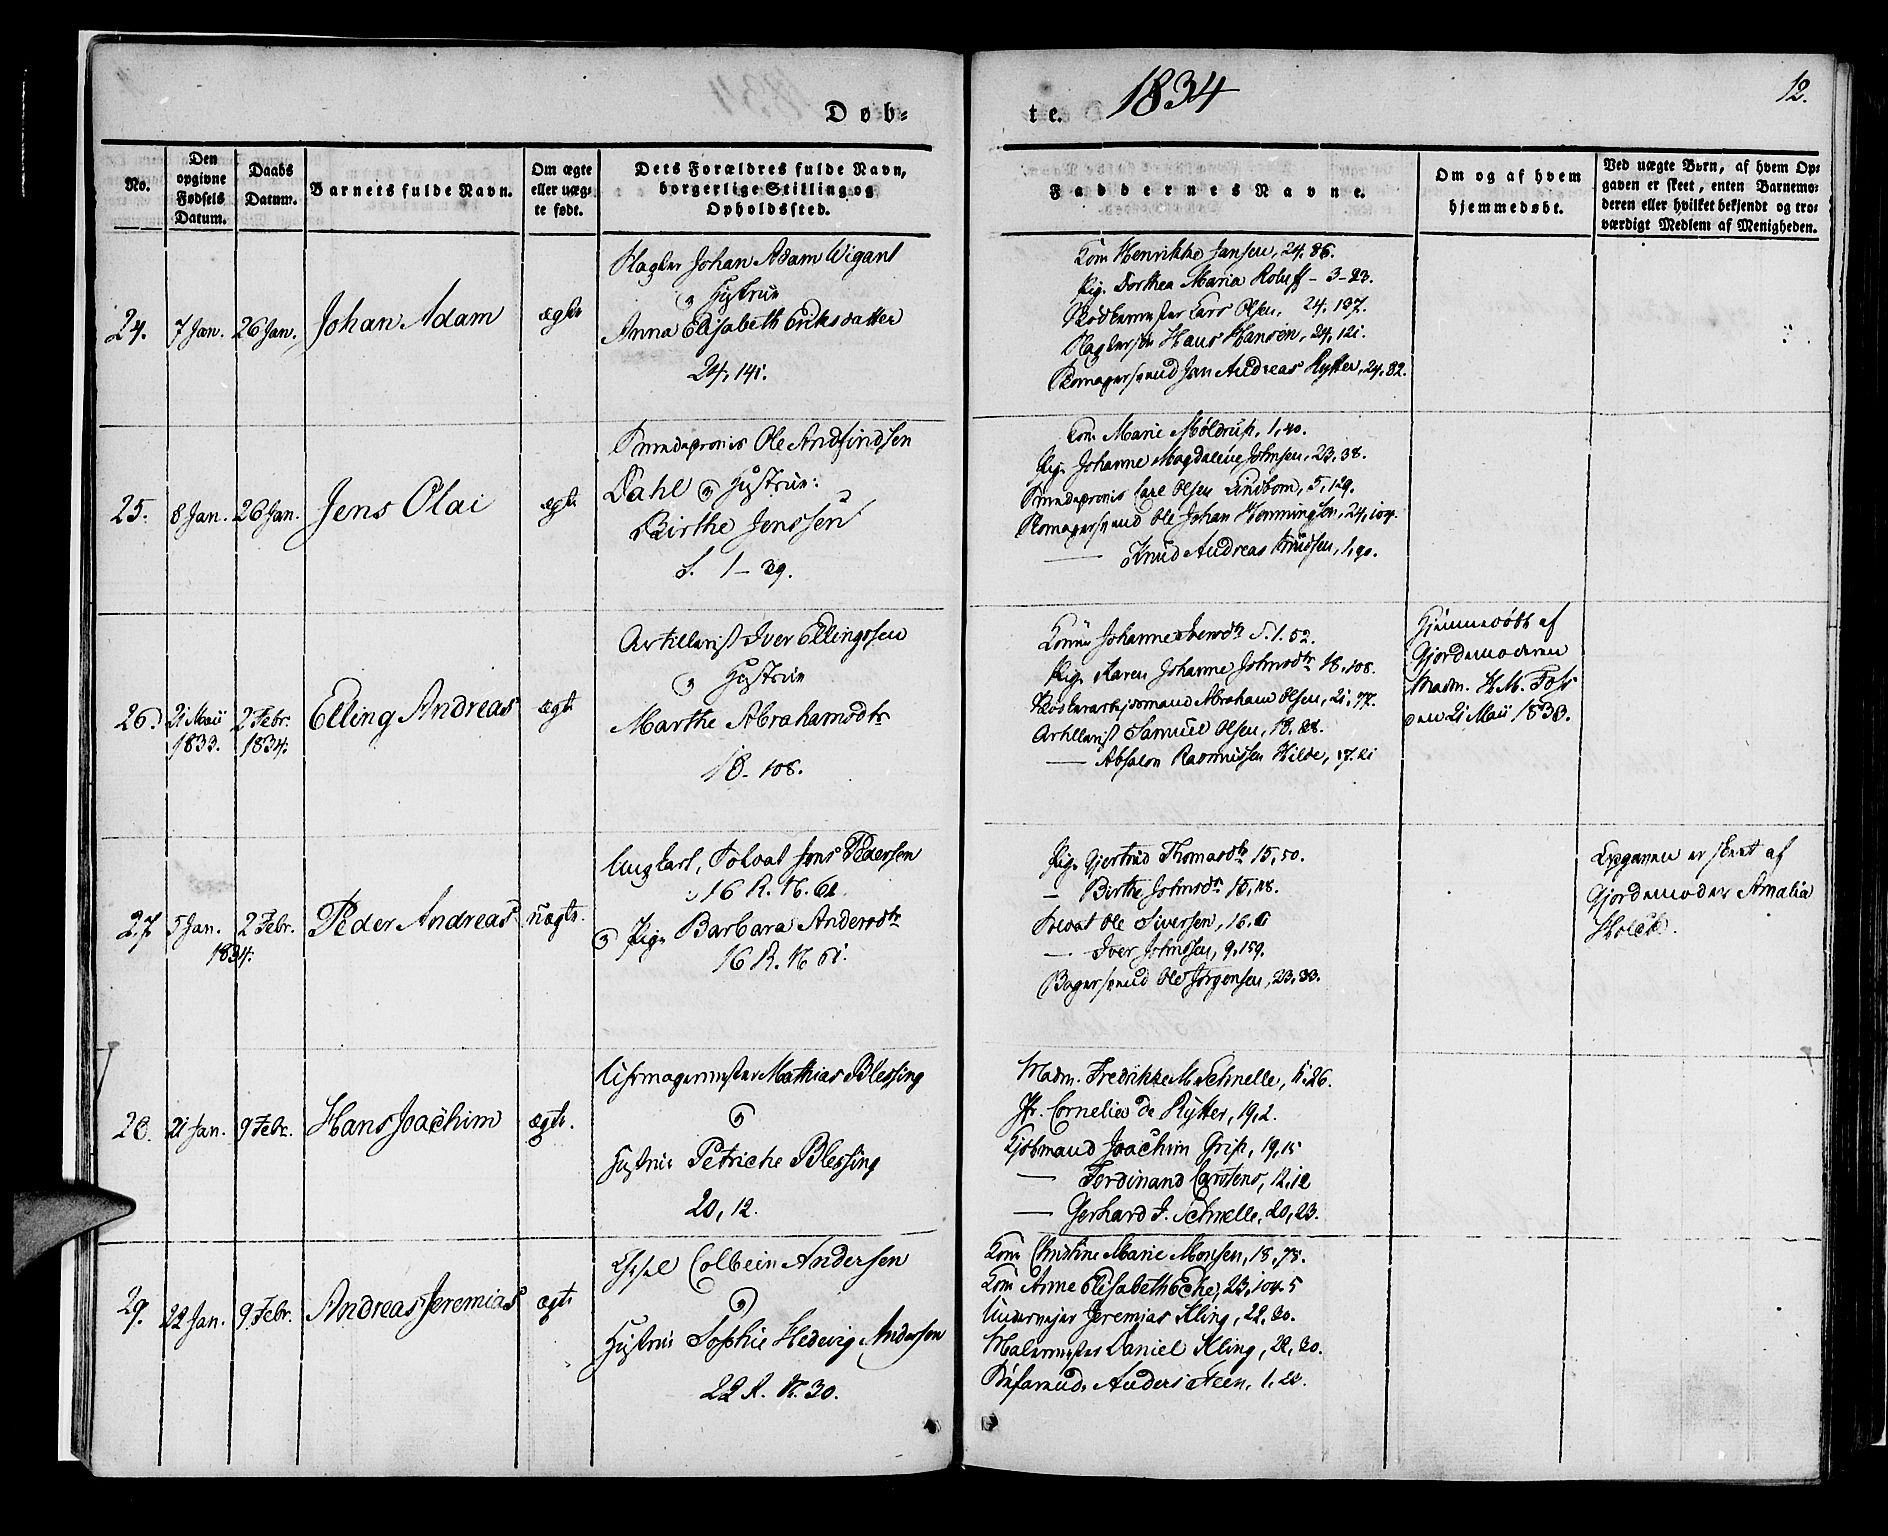 1834
12.
Døb=
te.
No.
Den opgivne Fødsels Datum.
Daabs Datum.
Barnets fulde Navn.
Om ægte eller uæg- te født.
Dets Forældres fulde Navn, borgerlige Stilling og Opholdssted.
Faddernes Navne.
Om og af hvem hjemmedøbt.
Ved uægte Børn, af hvem Op- gaven er skeet, enten Barnemo- deren eller hvilket bekjendt og tro- værdigt Medlem af Menigheden.
24.
7 Jan.
26 Jan.
Johan Adam
ægte
Slagter Johan Adam Wigant
og Hustrue
Anna Elisabeth Eriksdatter
24, 141.
Kone Henrikke Jansen, 24. 86.
Pige Dorthea Maria Roleff - 3 - 23.
Lars Olsen, 24. 127.
Hans Hansen, 24, 121.
Skomagersvend Jan Andreas Rytter, 24. 82.
25.
8 Jan.
26 Jan.
Jens Olai
ægte
Ole Andfindsen
Dahl og Hustrue:
Birthe Jenssen
S. 1 - 29.
Kone Marie Møldrup, 1, 40.
Pige Johanne Magdalene Johnsen, 23, 38.
Carl Olsen Lindbom, 5, 129.
Skomagersvend Ole Johan Henningsen, 24, 104.
— Knud Andreas Knudsen, 1, 90.
26.
21 Maii 1833.
2 Febr. 1834.
Elling Andreas
ægte
Artillerist Iver Ellingssen
og Hustrue
Marthe Abrahamsdtr
18. 108.
Konen Johanne Iversdtr S. 1. 52.
Pige Karen Johanne Johnsdtr 18. 108.
Abraham Olsen, 21, 77.
Artillerist Samuel Olsen, 18. 88.
— Absalon Rasmussen Hilde, 17. 21
Hjemmedøbt af
Gjordemoderen
Madm. H. M. Foss
den 21 Maii 1833.
27
5 Jan.
2 Febr.
1834.
Peder Andreas
uægte.
Ungkarl, Soldat Jens Pedersen
16 R. N. 61.
og Pige Barbara Andersdtr
16 R. N 61.
Pige Gjertrud Thomasdtr 15, 50.
— Birthe Johnsdtr 15, 28.
Soldat Ole Siversen, 16. 6
— Iver Johnssen, 9. 159.
Bagersvend Ole Jørgensen, 23, 33.
Opgaven er skeet af
Gjordemoder Amalia
28.
21 Jan.
9 Febr.
Hans Joachim
ægte.
Uhrmagermester Mathias Blessing
og
Hustrue Petriche Blessing
20, 12.
Madm. Fredrikke M. Schnelle, 11. 26.
Jfr. Cornelia de Rytter, 19, 2.
Kjøbmand Joachim Grip, 19, 15
— Ferdinand Carstens, 12, 12
— Gerhard J. Schnelle, 20, 23.
29.
22 Jan.
9 Febr.
Andreas Jeremias
ægte
Colbein Andersen
og
Hustrue Sophie Hedevig Andersen
22 R. N. 30.
Kone Christine Marie Monsen, 18, 78.
Kone Anne Elisabeth Eche, 23, 104. 5
Undervejer Jeremias Kling, 22, 30.
Malermester Daniel Kling, 22, 30.
Anders Steen, 1. 28.